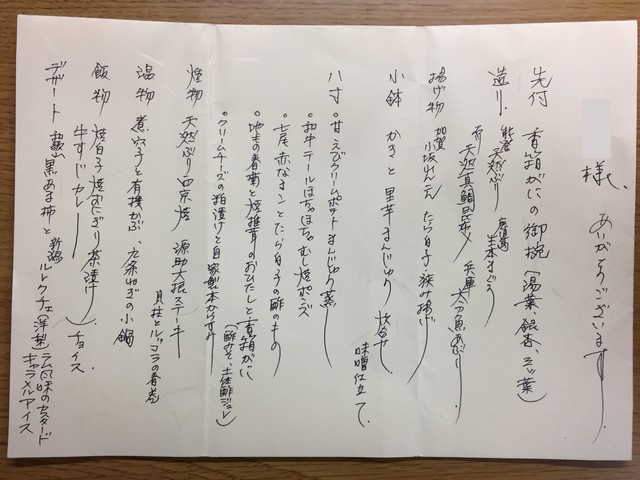 様 ありがとうございます
先付 香箱がにの御椀(湯葉、銀杏、三ッ葉)
造り 能登 天然ぶり 鹿児島 生本まぐろ
石川 天然真鯛昆布〆 兵庫 太刀魚あぶり
揚げ物 加賀 小坂れんこん たら白子挟み揚げ
小鉢 かきと里芋まんじゅう 炊合せ
味噌仕立て
八寸 ・甘えびクリームポテトまんじゅう蒸し
・和牛テールほろほろむし焼ポン酢
・七尾 赤なまことたら白子の酢のもの
・地もの春菊と焼椎茸のおひたしと香箱がに
(酢みそ、土佐酢ジュレ)
・クリームチーズの粕漬けと自家製本からすみ
焼物 天然ぶり西京焼 源助大根ステーキ
貝柱とルッコラの春巻
温物 煮穴子と有機かぶ、九条ねぎの小鍋
飯物 焼白子焼おにぎり茶漬け
牛すじカレー
チョイス
デザート 黒あま柿と新潟ル・レクチェ(洋梨)
ラム風味のカスタード
キャラメルアイス